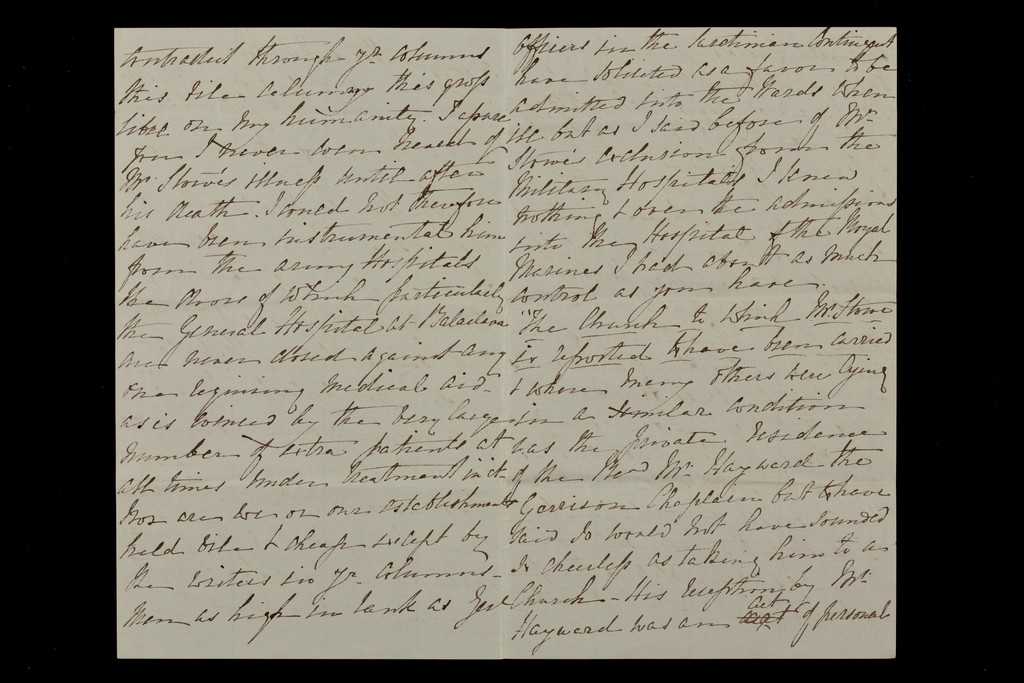 contradict through yr. columns
this vile calumny this gross
libel on my humanity. I assure
you I never even heard of
Mr. Stowe's illness until after
his death. I could not therefore
have been instrumental him
from the army Hospitals
the doors of which particularly
the General Hospital at Balaclava
are never closed against any
one requiring medical aid
as is evinced by the very large
number of extra patients at
all times under treatment in it
Nor are we or our establishments
held vile & cheap except by
the writers in yr. columns
Men as high in rank as
Officers in the Sardinian Contingent
have solicited as a favor to be
admitted into the Wards when
ill but as I said before of Mr.
Stowe's exclusion from the
Military Hospitals I knew
nothing & over the admissions
into the Hospital of the Royal
Marines I had about as much
control as you have.
"The Church to which Mr. Stowe
is reported to have been carried
& where many others were lying
in a similar condition
was the private residence
of the Revd. Mr. Hayward the
Garrison Chaplain but to have
said so would not have sounded
so cheerless as taking him to a
Church - His reception by Mr.
Hayward was an act of personal